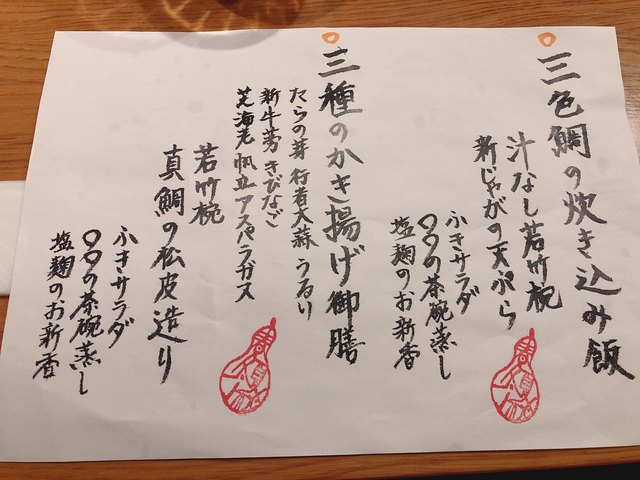 三色鯛の炊き込み飯
汁なし若竹椀
新じゃがの天ぷら
ふきサラダ
〇〇の茶碗蒸し
塩麹のお新香
三種のかき揚げ御膳
たらの芽 行者大蒜 うるり
新牛蒡 きびなご
芝海老 帆立 アスパラガス
若竹椀
真鯛の松皮造り
ふきサラダ
〇〇の茶碗蒸し
塩麹のお新香